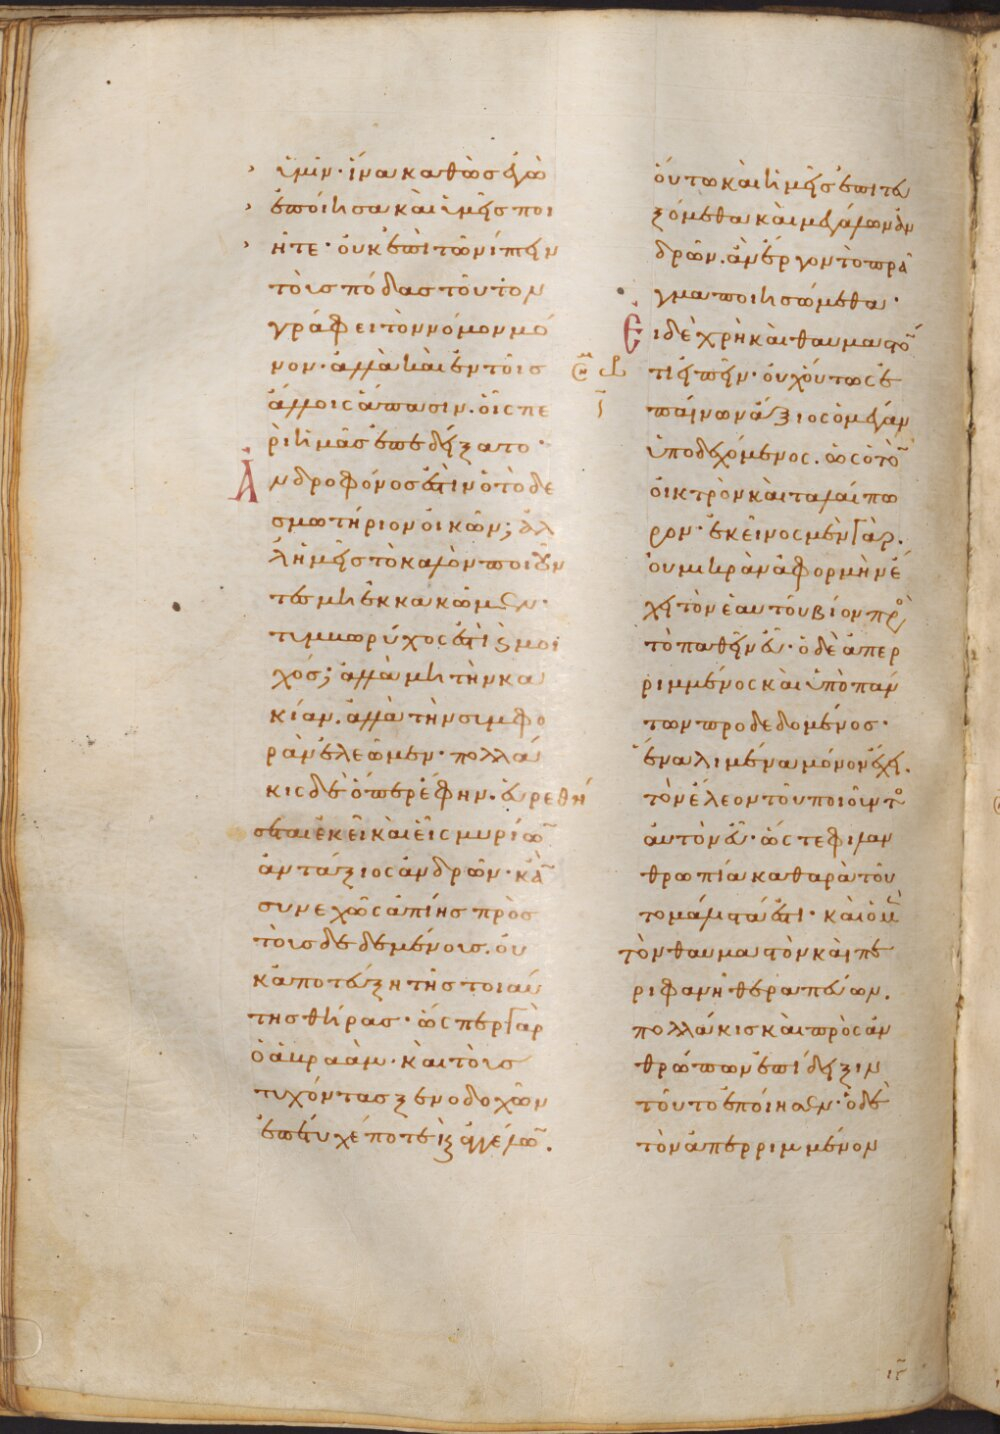 ὑμῖν· ἵνα καθὼς ἐγὼ
ἐποίησα καὶ ὑμεῖς ποι
ῆτε· οὐκ ἐπὶ τῶν νίπτειν
τοὺς πόδας τοῦτον
γράφει τὸν νόμον μό
νον· ἀλλὰ καὶ ἐν τοῖς
ἄλλοις ἅπασιν. οἷς πε
ρὶ ἡμᾶς ἐπεδείξατο·
Ἀνδροφόνος ἐστὶν ὁ τὸ δε
σμωτήριον οἰκῶν; ἀλ
λ' ἡμεῖς τὸ καλὸν ποιοῦν
τες μὴ ἐκκακῶμεν·
τυμβωρύχος ἐστὶ καὶ μοι
χός; ἀλλὰ μὴ τὴν κα
κίαν. ἀλλὰ τὴν συμφο
ρὰν ἐλεῶμεν· πολλά
κις δὲ ὅπερ ἔφην. εὑρεθή
σεται ἐκεῖ καὶ εἷς μυρίων
ἀντάξιος ἀνδρῶν· κἂν
συνεχῶς ἀπίῃς πρὸς
τοὺς δεδεμένους. οὐ
κ ἀποτεύξῃ τῆς τοιαύ
της θήρας· ὥσπερ γὰρ
ὁ ἀβραὰμ· καὶ τοὺς
τυχόντας ξενοδοχῶν
ἐπέτυχέ ποτε καὶ ἀγγέλων.
οὕτω καὶ ἡμεῖς ἐπιτευ
ξόμεθα καὶ μεγάλων ἀν
δρῶν. ἂν ἔργον τὸ πρᾶ
γμα ποιησώμεθα·
Εἰ δὲ χρὴ καὶ θαυμαστόν
τι εἰπεῖν· οὐχ οὕτως ἐ
παίνων ἄξιος ὁ μέγαν
ὑποδεχόμενος. ὡς ὁ τὸν
οἰκτρὸν καὶ ταλαίπω
ρον· ἐκεῖνος μὲν γὰρ.
οὐ μικρὰν ἀφορμὴν ἔ
χει τὸν ἑαυτοῦ βίον πρὸς
τὸ παθεῖν εὖ· ὁ δὲ ἀπερ
ριμμένος καὶ ὑπὸ πάν
των προδεδομένος·
ἕνα λιμένα μόνον ἔχει.
τὸν ἔλεον τοῦ ποιοῦντος
αὐτὸν εὖ· ὥστε φιλαν
θρωπία καθαρὰ τοῦ
το μάλιστά ἐστι· καὶ ὁ μὲν
τὸν θαυμαστὸν καὶ πε
ριφανῆ θεραπεύων.
πολλάκις καὶ πρὸς ἀν
θρώπων ἐπίδειξιν
τοῦτο ἐποίησεν· ὁ δὲ
τὸν ἀπερριμμένον
ιϛ